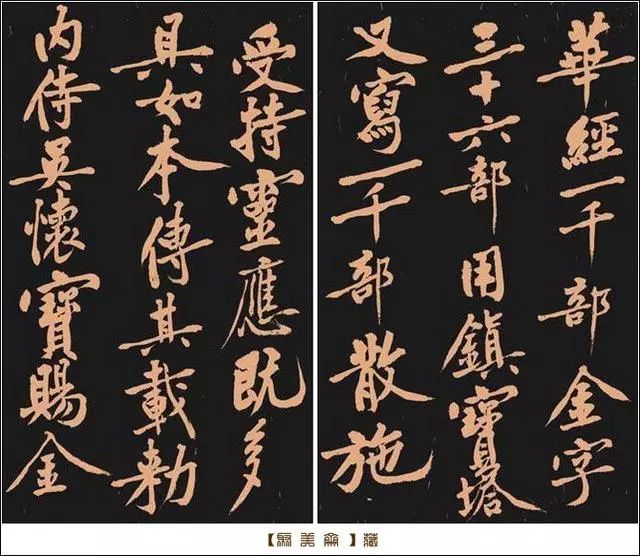 華經一千部金字
三十六部用鎮寶塔
又寫一千部散施
受持靈應既多
具如本傳其載勅
內侍吳懷寶賜金